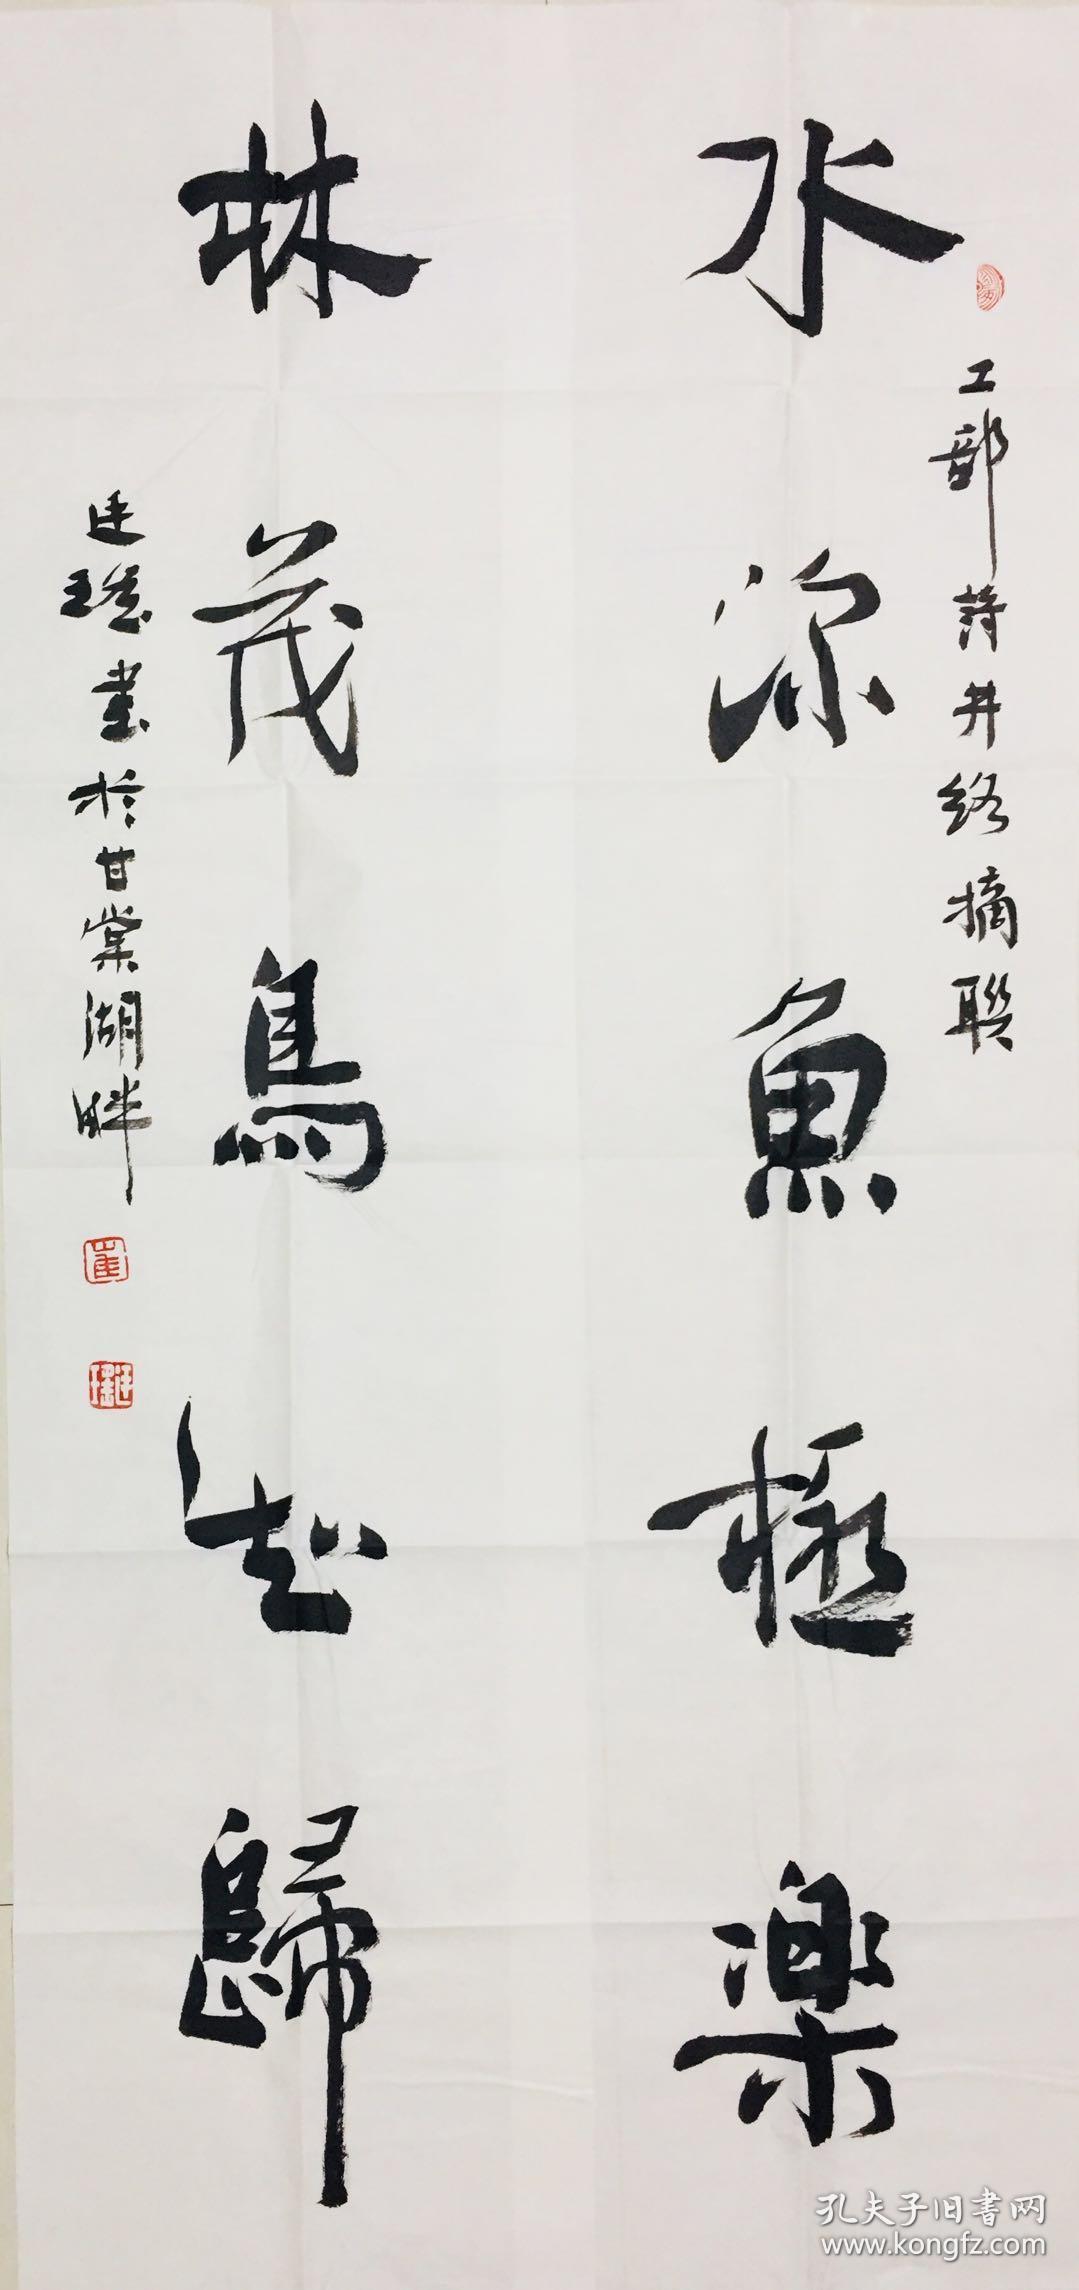 工部诗井络摘联
水深魚極樂
林茂鳥知歸
廷瑤書於甘棠湖畔
孔夫子旧书网
www.kongfz.com